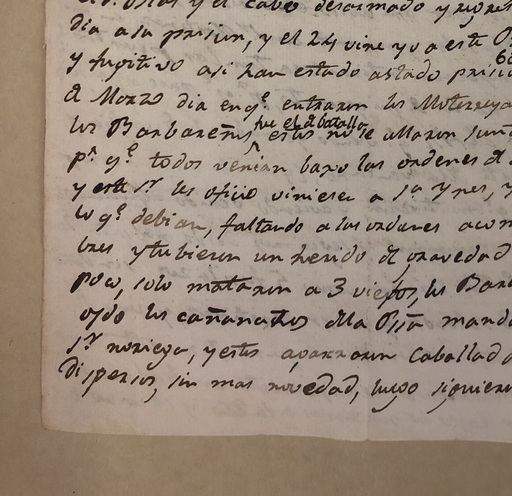 y el cabo desarmado y
dia a su prision, y el 24 vine yo a este
y fugitivo asi han estado astado
de Marzo dia en qe. entraron los Monterreya
fue el d batalla
los Barbareños estos no se allaron
pr. qe. todos venian baxo las ordenes de
y este Sr. les oficio viniesen a Sta Ynes, y
lo qe. debian, faltando a las ordenes
tres y tubieron un herido de gravedad
poco, solo mataron a 3 viejos, los Bar
los cañonazos dela mand
Sr noriega, y estos agarraron Caballad
Dispersos, sin mas novedad, luego siguieron